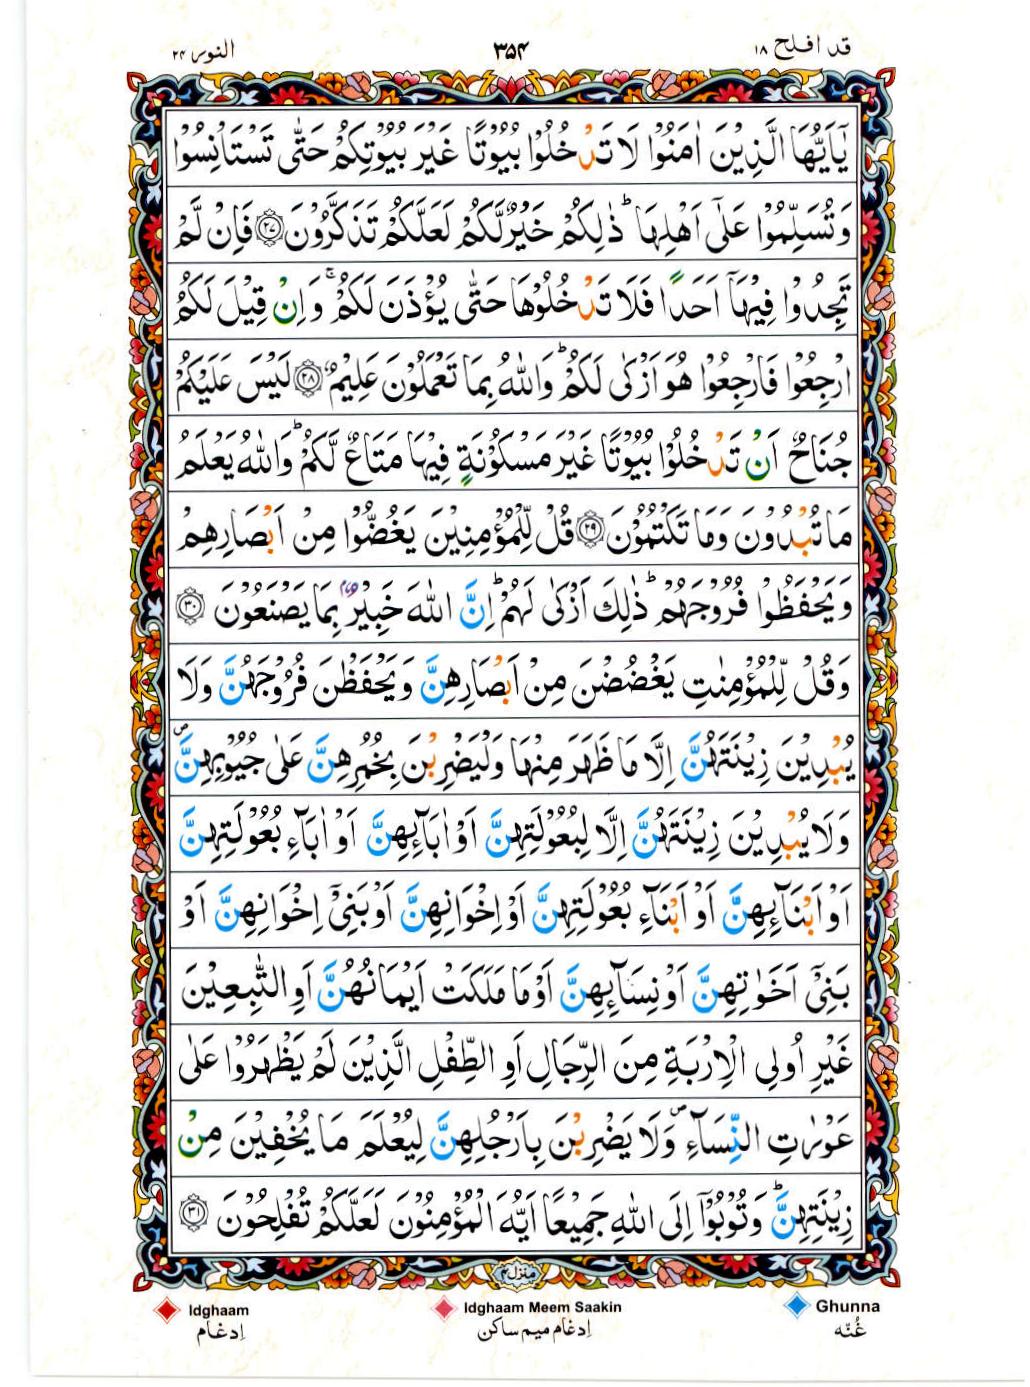 قد افلح ۱۸
۳۵۴
النور ۲۴
يٰۤاَيُّهَا الَّذِيْنَ اٰمَنُوْا لَا تَدْخُلُوْا بُيُوْتًا غَيْرَ بُيُوْتِكُمْ حَتّٰى تَسْتَاْنِسُوْا
وَتُسَلِّمُوْا عَلٰٓى اَهْلِهَا ؕ ذٰلِكُمْ خَيْرٌ لَّكُمْ لَعَلَّكُمْ تَذَكَّرُوْنَ ۝۲۷ فَاِنْ لَّمْ
تَجِدُوْا فِيْهَاۤ اَحَدًا فَلَا تَدْخُلُوْهَا حَتّٰى يُؤْذَنَ لَكُمْ ۚ وَاِنْ قِيْلَ لَكُمُ
ارْجِعُوْا فَارْجِعُوْا هُوَ اَزْكٰى لَكُمْ ؕ وَاللّٰهُ بِمَا تَعْمَلُوْنَ عَلِيْمٌ ۝۲۸ لَيْسَ عَلَيْكُمْ
جُنَاحٌ اَنْ تَدْخُلُوْا بُيُوْتًا غَيْرَ مَسْكُوْنَةٍ فِيْهَا مَتَاعٌ لَّكُمْ ؕ وَاللّٰهُ يَعْلَمُ
مَا تُبْدُوْنَ وَمَا تَكْتُمُوْنَ ۝۲۹ قُلْ لِّلْمُؤْمِنِيْنَ يَغُضُّوْا مِنْ اَبْصَارِهِمْ
وَيَحْفَظُوْا فُرُوْجَهُمْ ؕ ذٰلِكَ اَزْكٰى لَهُمْ ؕ اِنَّ اللّٰهَ خَبِيْرٌۢ بِمَا يَصْنَعُوْنَ ۝۳۰
وَقُلْ لِّلْمُؤْمِنٰتِ يَغْضُضْنَ مِنْ اَبْصَارِهِنَّ وَيَحْفَظْنَ فُرُوْجَهُنَّ وَلَا
يُبْدِيْنَ زِيْنَتَهُنَّ اِلَّا مَا ظَهَرَ مِنْهَا وَلْيَضْرِبْنَ بِخُمُرِهِنَّ عَلٰى جُيُوْبِهِنَّ ۪
وَلَا يُبْدِيْنَ زِيْنَتَهُنَّ اِلَّا لِبُعُوْلَتِهِنَّ اَوْ اٰبَآئِهِنَّ اَوْ اٰبَآءِ بُعُوْلَتِهِنَّ
اَوْ اَبْنَآئِهِنَّ اَوْ اَبْنَآءِ بُعُوْلَتِهِنَّ اَوْ اِخْوَانِهِنَّ اَوْ بَنِيْۤ اِخْوَانِهِنَّ اَوْ
بَنِيْۤ اَخَوٰتِهِنَّ اَوْ نِسَآئِهِنَّ اَوْ مَا مَلَكَتْ اَيْمَانُهُنَّ اَوِ التّٰبِعِيْنَ
غَيْرِ اُولِى الْاِرْبَةِ مِنَ الرِّجَالِ اَوِ الطِّفْلِ الَّذِيْنَ لَمْ يَظْهَرُوْا عَلٰى
عَوْرٰتِ النِّسَآءِ ۪ وَلَا يَضْرِبْنَ بِاَرْجُلِهِنَّ لِيُعْلَمَ مَا يُخْفِيْنَ مِنْ
زِيْنَتِهِنَّ ؕ وَتُوْبُوْۤا اِلَى اللّٰهِ جَمِيْعًا اَيُّهَ الْمُؤْمِنُوْنَ لَعَلَّكُمْ تُفْلِحُوْنَ ۝۳۱
منزل ۴
Ghunna
غُنّه
Idghaam Meem Saakin
اِدغام میم ساکن
Idghaam
اِدغام